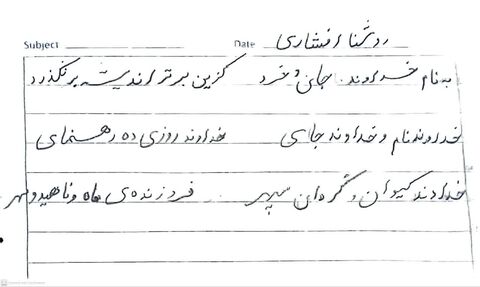 روشنا افشاری
Subject Date
به نام خداوند جان و خرد کزین برتر اندیشه برنگذرد
خداوند نام و خداوند جای خداوند روزی ده رهنمای
خداوند کیوان و گردان سپهر فروزنده‌ی ماه و ناهید و مهر